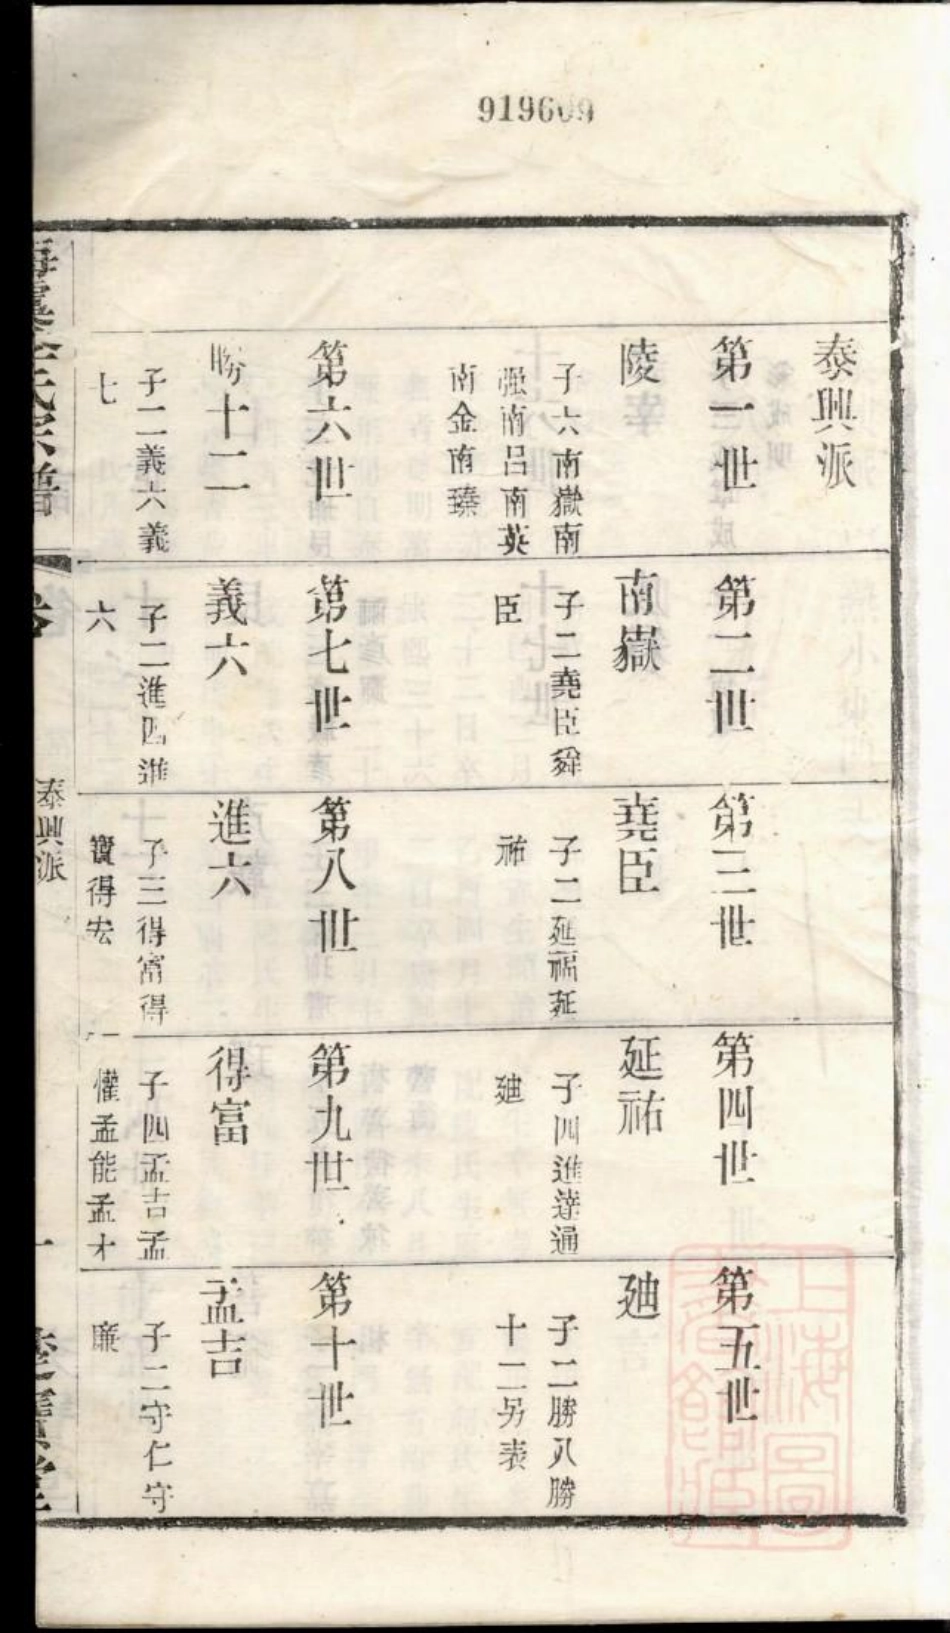 919609
泰興派
第一世
陵
子六南嶽南
强南呂南英
南金南臻
第二世
南嶽
子二堯臣舜
臣
第三世
堯臣
子二延福延
祐
第四世
延祐
子四進達通
廸
第五世
廸
子二勝八勝
十二另表
第六世
勝十二
子二義六義
七
第七世
義六
子二進四進
六
第八世
進六
子三得富得
寶得宏
第九世
得富
子四孟吉孟
懽孟能孟才
第十世
孟吉
子二守仁守
廉
氏宗譜
卷
泰興派
一
上海圖
書館藏